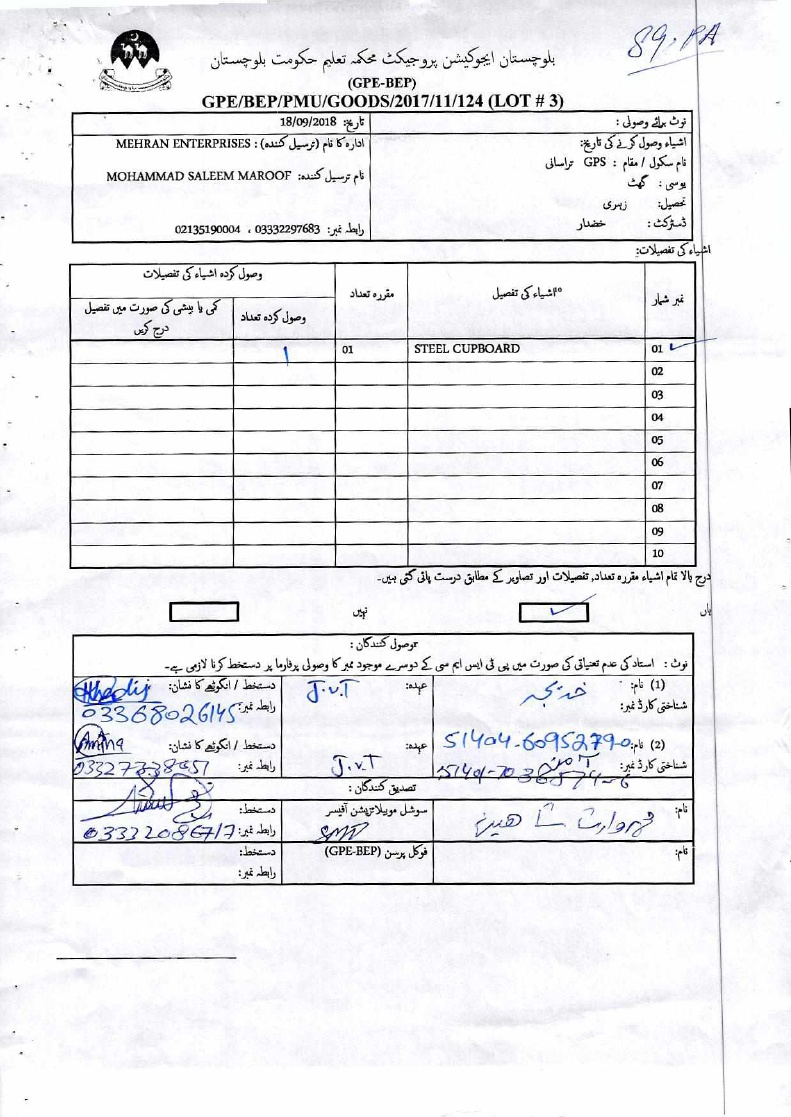 89. PA
بلوچستان ایجوکیشن پروجیکٹ محکمہ تعلیم حکومت بلوچستان
(GPE-BEP)
GPE/BEP/PMU/GOODS/2017/11/124 (LOT # 3)
نوٹ برائے وصولی :
تاریخ: 18/09/2018
اشیاء وصول کرنے کی تاریخ:
ادارہ کا نام (ترسیل کنندہ) : MEHRAN ENTERPRISES
نام سکول / مقام : GPS تراسانی
نام ترسیل کنندہ: MOHAMMAD SALEEM MAROOF
یو سی : گھٹ
تحصیل: زہری
ڈسٹرکٹ : خضدار
رابطہ نمبر: 03332297683 ، 02135190004
اشیاء کی تفصیلات:
نمبر شمار
اشیاء کی تفصیل
مقررہ تعداد
وصول کردہ اشیاء کی تفصیلات
وصول کردہ تعداد
کمی یا بیشی کی صورت میں تفصیل درج کریں
01 STEEL CUPBOARD 01 1
02
03
04
05
06
07
08
09
10
درج بالا تمام اشیاء مقررہ تعداد, تفصیلات اور تصاویر کے مطابق درست پائی گئی ہیں۔
ہاں
نہیں
وصول کنندگان :
نوٹ : استاد کی عدم تعیناتی کی صورت میں پی ٹی ایس ایم سی کے دوسرے موجود ممبر کا وصولی پرفارما پر دستخط کرنا لازمی ہے۔
(1) نام: خدیجہ
عہدہ: J.V.T
دستخط / انگوٹھے کا نشان: Khadij
شناختی کارڈ نمبر:
رابطہ نمبر: 03368026145
(2) نام: 51404-60952790
عہدہ: J.V.T
دستخط / انگوٹھے کا نشان: Amna
شناختی کارڈ نمبر: آمنہ
رابطہ نمبر:
تصدیق کنندگان :
نام:
سوشل موبیلائزیشن آفیسر
دستخط:
رابطہ نمبر: 03332086717
نام:
فوکل پرسن (GPE-BEP)
دستخط:
رابطہ نمبر: